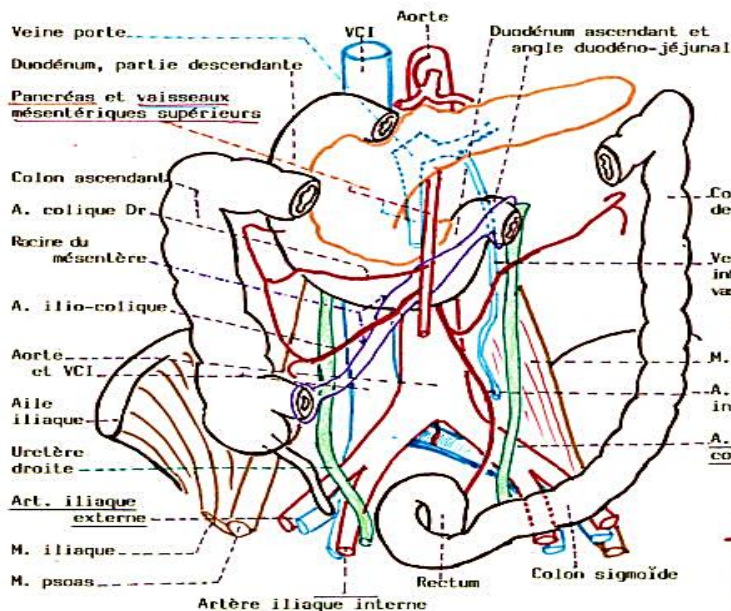 Aorte
Veine porte
VCI
Duodénum ascendant et
angle duodéno-jéjunal
Duodénum, partie descendante
Pancréas et vaisseaux
mésentériques supérieurs
Colon ascendant
A. colique Dr
Racine du
mésentère
A. ilio-colique
Aorte
et VCI
Aile
iliaque
Uretère
droite
Art. iliaque
externe
M. iliaque
M. psoas
Artère iliaque interne
Rectum
Colon sigmoïde
Co
de
Ve
in
va
M.
A.
in
A.
co